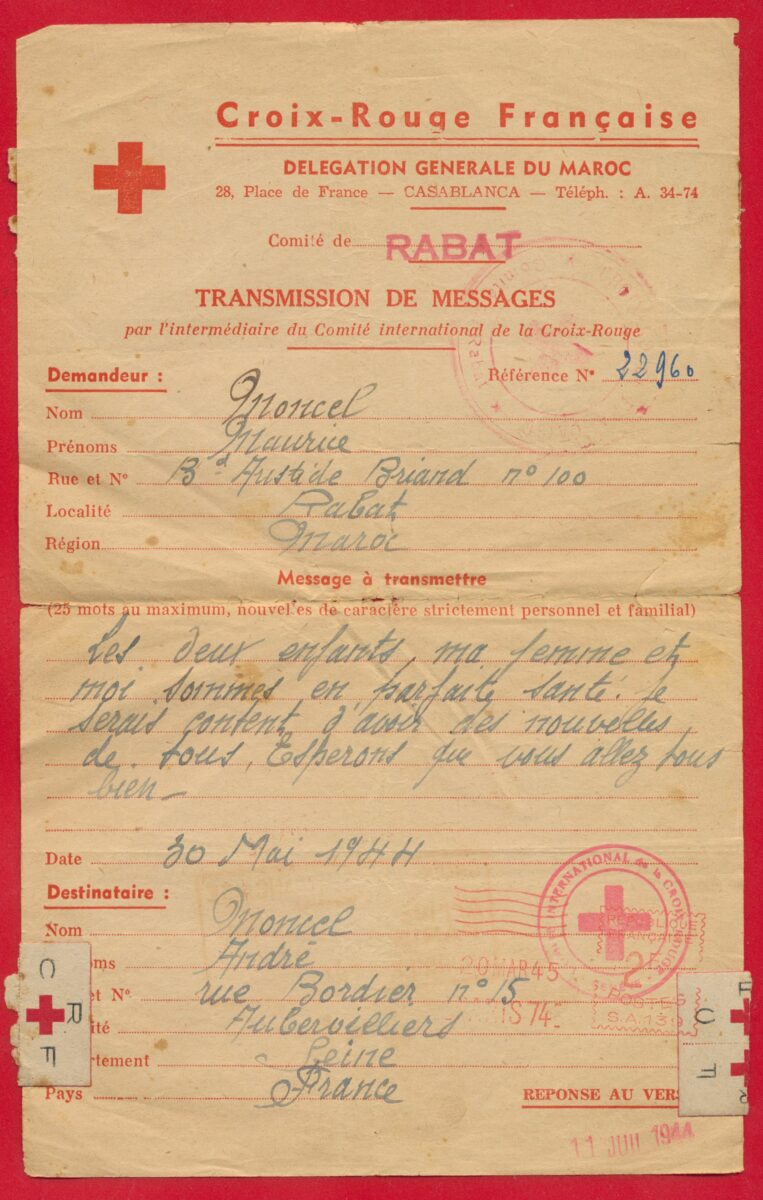 Croix-Rouge Française
DELEGATION GENERALE DU MAROC
28, Place de France — CASABLANCA — Téléph. : A. 34-74
Comité de RABAT
TRANSMISSION DE MESSAGES
par l'intermédiaire du Comité international de la Croix-Rouge
Demandeur :
Référence N° 22960
Nom Moncel
Prénoms Maurice
Rue et N° Bd Aristide Briand n° 100
Localité Rabat
Région Maroc
Message à transmettre
(25 mots au maximum, nouvelles de caractère strictement personnel et familial)
Les deux enfants, ma femme et
moi sommes en parfaite santé. Je
serais content d'avoir des nouvelles
de tous, Esperons que vous allez tous
bien –
Date 30 Mai 1944
Destinataire :
INTERNATIONAL de la CROIX-ROUGE
Nom Moncel
REPUBLIQUE
FRANÇAISE
oms André
20 MAR 45
et N° rue Bordier n° 15
POSTES
S.A 139
ité Aubervilliers
rtement Seine
Pays France
C R F
REPONSE AU VERS
11 JUI 1944